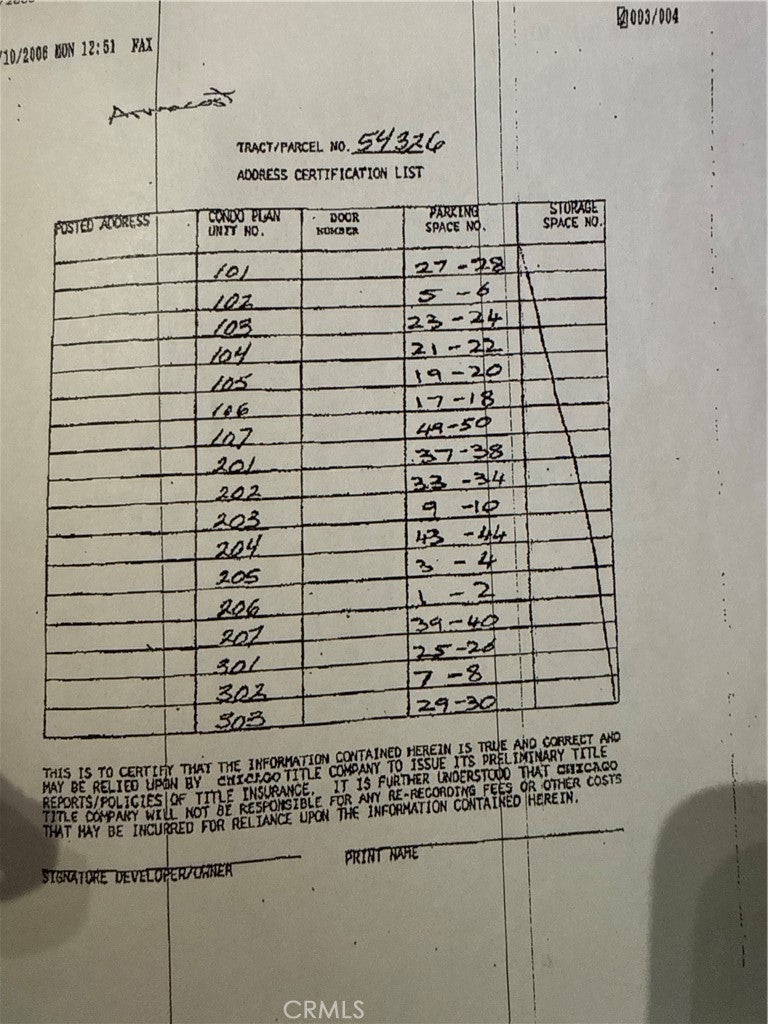 /10/2006 MON 12:51 FAX
003/004
Armacost
TRACT/PARCEL NO. 54326
ADDRESS CERTIFICATION LIST
POSTED ADDRESS CONDO PLAN UNIT NO. DOOR NUMBER PARKING SPACE NO. STORAGE SPACE NO.
101 27-28
102 5-6
103 23-24
104 21-22
105 19-20
106 17-18
107 49-50
201 37-38
202 33-34
203 9-10
204 43-44
205 3-4
206 1-2
207 39-40
301 25-26
302 7-8
303 29-30
THIS IS TO CERTIFY THAT THE INFORMATION CONTAINED HEREIN IS TRUE AND CORRECT AND
MAY BE RELIED UPON BY CHICAGO TITLE COMPANY TO ISSUE ITS PRELIMINARY TITLE
REPORTS/POLICIES OF TITLE INSURANCE. IT IS FURTHER UNDERSTOOD THAT CHICAGO
TITLE COMPANY WILL NOT BE RESPONSIBLE FOR ANY RE-RECORDING FEES OR OTHER COSTS
THAT MAY BE INCURRED FOR RELIANCE UPON THE INFORMATION CONTAINED HEREIN.
SIGNATURE DEVELOPER/OWNER PRINT NAME
CRMLS